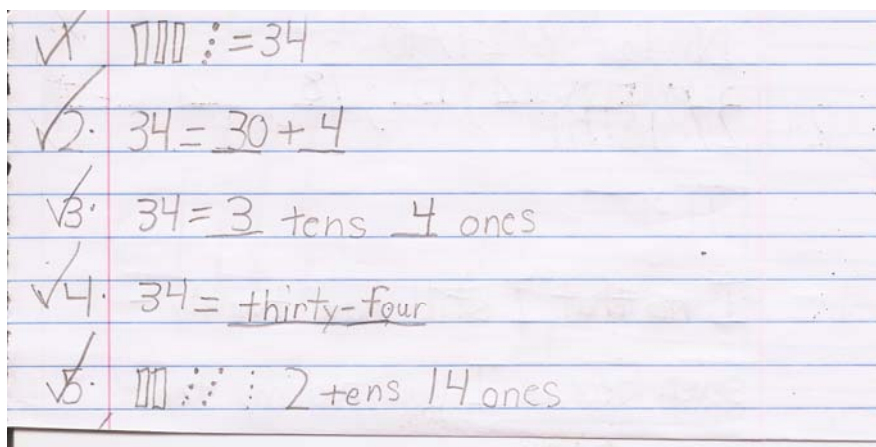 1. = 34
2. 34 = 30 + 4
3. 34 = 3 tens 4 ones
4. 34 = thirty-four
5. 2 tens 14 ones